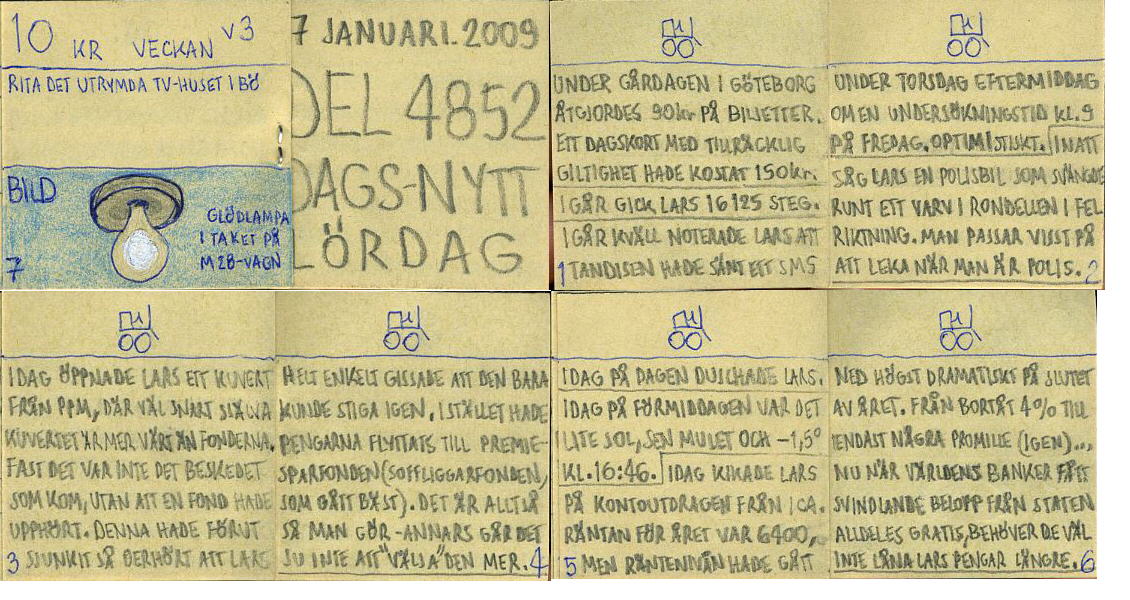 10 KR VECKAN V3
RITA DET UTRYMDA TV-HUSET I BÖ
BILD
GLÖDLAMPA
I TAKET PÅ
M28-VAGN
7
7 JANUARI. 2009
DEL 4852
DAGS-NYTT
LÖRDAG
UNDER GÅRDAGEN I GÖTEBORG
ÅTGJORDES 90kr PÅ BILJETTER.
ETT DAGSKORT MED TILLRÄCKLIG
GILTIGHET HADE KOSTAT 150kr.
IGÅR GICK LARS 16125 STEG.
IGÅR KVÄLL NOTERADE LARS ATT
TANDISEN HADE SÄNT ETT SMS
1
UNDER TORSDAG EFTERMIDDAG
OM EN UNDERSÖKNINGSTID KL.9
PÅ FREDAG. OPTIMISTISKT. INATT
SÅG LARS EN POLISBIL SOM SVÄNGDE
RUNT ETT VARV I RONDELLEN I FEL
RIKTNING. MAN PASSAR VISST PÅ
ATT LEKA NÄR MAN ÄR POLIS.
2
IDAG ÖPPNADE LARS ETT KUVERT
FRÅN PPM, DÄR VÄL SNART SJÄLVA
KUVERTET ÄR MER VÄRT ÄN FONDERNA.
FAST DET VAR INTE DET BESKEDET
SOM KOM, UTAN ATT EN FOND HADE
UPPHÖRT. DENNA HADE FÖRUT
SJUNKIT SÅ OERHÖRT ATT LARS
3
HELT ENKELT GISSADE ATT DEN BARA
KUNDE STIGA IGEN, ISTÄLLET HADE
PENGARNA FLYTTATS TILL PREMIE-
SPARFONDEN (SOFFLIGGARFONDEN,
SOM GÅTT BÄST). DET ÄR ALLTSÅ
SÅ MAN GÖR - ANNARS GÅR DET
JU INTE ATT "VÄLJA" DEN MER.
4
IDAG PÅ DAGEN DUSCHADE LARS.
IDAG PÅ FÖRMIDDAGEN VAR DET
LITE SOL, SEN MULET OCH -1,5°
KL.16:46. IDAG KIKADE LARS
PÅ KONTOUTDRAGEN FRÅN ICA.
RÄNTAN FÖR ÅRET VAR 6400,
MEN RÄNTENIVÅN HADE GÅTT
5
NED HÖGST DRAMATISKT PÅ SLUTET
AV ÅRET. FRÅN BORTÅT 4% TILL
ENDAST NÅGRA PROMILLE (IGEN)...,
NU NÄR VÄRLDENS BANKER FÅTT
SVINDLANDE BELOPP FRÅN STATEN
ALLDELES GRATIS, BEHÖVER DE VÄL
INTE LÅNA LARS PENGAR LÄNGRE.
6